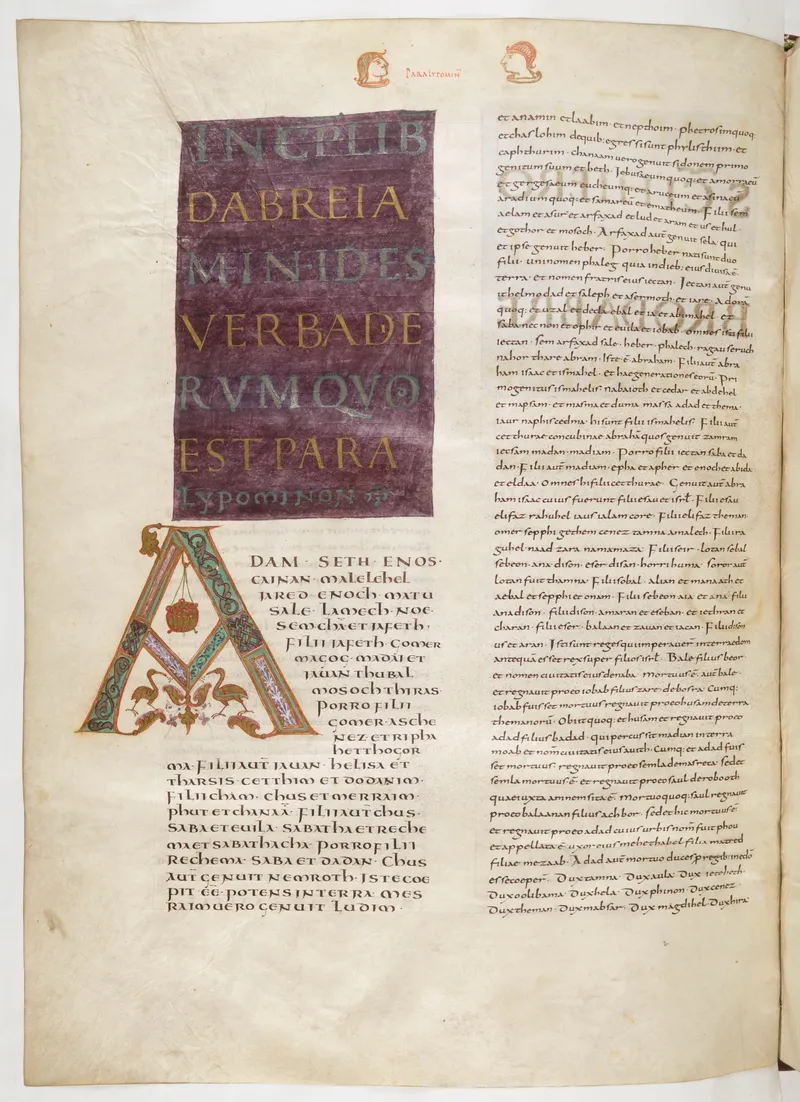 PARALYPOMIN̄
INCPLIB̄
DABREIA
MIN·IDES·
VERBADE
RVMQVO
EST PARA
LYPOMINON
A
DAM · SETH · ENOS ·
CAINAN · MALELEHEL
JARED · ENOCH · MATU
SALE · LAMECH · NOE ·
SEMCHĀET JAFETH ·
FILII JAFETH · GOMER
MAGOG · MADAI ET
JAUAN THUBAL
MOSOCH THIRAS
PORRO FILII
GOMER · ASCHE
NEZ · ET RIPHA
HETTHOGOR
MA · FILII AUT̄ JAUAN · HELISA ET
THARSIS · CETTHIM ET DODANIM ·
FILII CHAM · CHUS ET MERRAIM ·
PHUT ET CHANAĀ · FILII AUT̄ CHUS ·
SABA ET EUILA · SABATHA ET RECHE
MA ET SABATHACHA · PORRO FILII
RECHEMA · SABA ET DADAN · CHUS
AUT̄ GENUIT NEMROTH · ISTE COE
PIT EĒ · POTENS IN TERRA · MES
RAIM UERO GENUIT LUDIM ·
et anamin et laabim · et nepthoim · phetrosim quoq
et chasloim de quib; egressi sunt phylisthiim · et
capthurim · chanaam uero genuit sidonem primo
genitum suum et heth · Iebuseum quoq; et amorraeū
et gergeseum eucheumq; et aruceum et asinaeū
aradium quoq; et samareū et ematheum · Filii sem
aelam et asur et arfaxad et lud et aram et us et hul ·
et gothor et mosoch · Arfaxad aut̄ genuit sela · qui
et ipse genuit heber · Porro heber nati sunt duo
filii · uni nomen phaleg · quia in dieb; eius diuisa ē
terra · et nomen fratris eius iectan · Iectan aut̄ genu
it helmodad et saleph et asermoth et iare · Adorā
quoq; et uzal et decla · ebal et ia et abimahel · et
saba nec non et ophir et euila et iobab · omnes isti filii
iectan · sem arfaxad sale · heber · phalech · ragau seruch
nahor thare abram · Iste ē abraham · Filii aut̄ abra
ham isaac et ismahel · et hae generationes eorū · Pri
mogenitus ismahelis nabaioth et cedar et abdehel
et mapsam · et masma et duma massa adad et thema ·
iaur naphis cedma · hi sunt filii ismahelis · Filii aut̄
cetthurae concubinae abrahā quos genuit zamram
iecsam madan · madiam · Porro filii iectan saba et da
dan · Filii aut̄ madiam · epha et apher et enoch et abida
et eldaa · Omnes hi filii cetthurae · Genuit aut̄ abra
ham isaac cuius fuerunt filii esau et isrł · Filii esau
elifaz rahuhel iaus ialam core · Filii elifaz theman
omer sepphi gethem cenez tamna amalech · Filii ra
guhel · naad zara nama maza · Filii seir · lotan sobal
sebeon · ana · dison · eser · disan · horri huma · soror aut̄
lotan fuit thamna · Filii sobal · alian et manaath et
aebal et sepphi et onam · Filii sebeon aia et ana · filii
ana dison · filii dison · amaran et eseban · et iethran et
charan · filii eser · balaan et zauan et iacan · Filii disan
us et aran · Isti sunt reges qui imperauer̄ in terra edom
antequā esset rex super filios isrł · Bale filius beor
et nomen ciuitatis eius denaba · Mortuus ē aut̄ bale ·
et regnauit pro eo iobab filius zare · de bosra · Cumq;
iobab fuisset mortuus regnauit pro eo husam de terra
themanorū · Obiit quoq; et husam et regnauit pro eo
adad filius badad · qui percussit madian in terra
moab et nom̄ ciuitatis eius auith · Cumq; et adad fuis
set mortuus · regnauit pro eo semla de masreca · sed et
semla mortuus ē · et regnauit pro eo saul de roboth
quae iuxta amnem sita ē · Mortuo quoq; saul regnauit
pro eo balaanan filius achbor · sed et hic mortuus ē
et regnauit pro eo adad cuius urbis nom̄ fuit phou
et appellata ē uxor eius mehethabel filia matred
filiae mezaab · Adad aut̄ mortuo duces p regib; in edō
esse coeper̄ · Dux tamna · Dux aula · Dux iecoheth ·
Dux oolibama · Dux hela · Dux phinon · Dux cenez ·
Dux theman · Dux mabsar · Dux magdihel · Dux hira